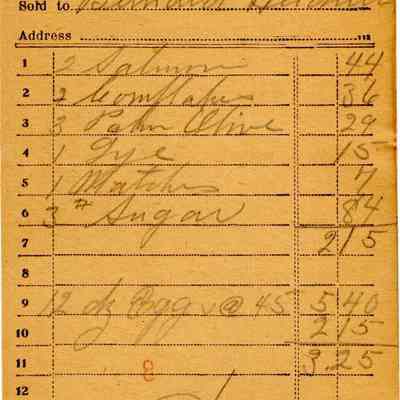 Sold to Bernard
Address
1 2 Salmon 44
2 2 Cornflakes 36
3 3 Palm Olive 29
4 1 Lye 15
5 1 Matches 7
6 3# Sugar 84
7 2 15
8
9 12 dz Eggs @ 45 5 40
10 2 15
11 3.25
8
12